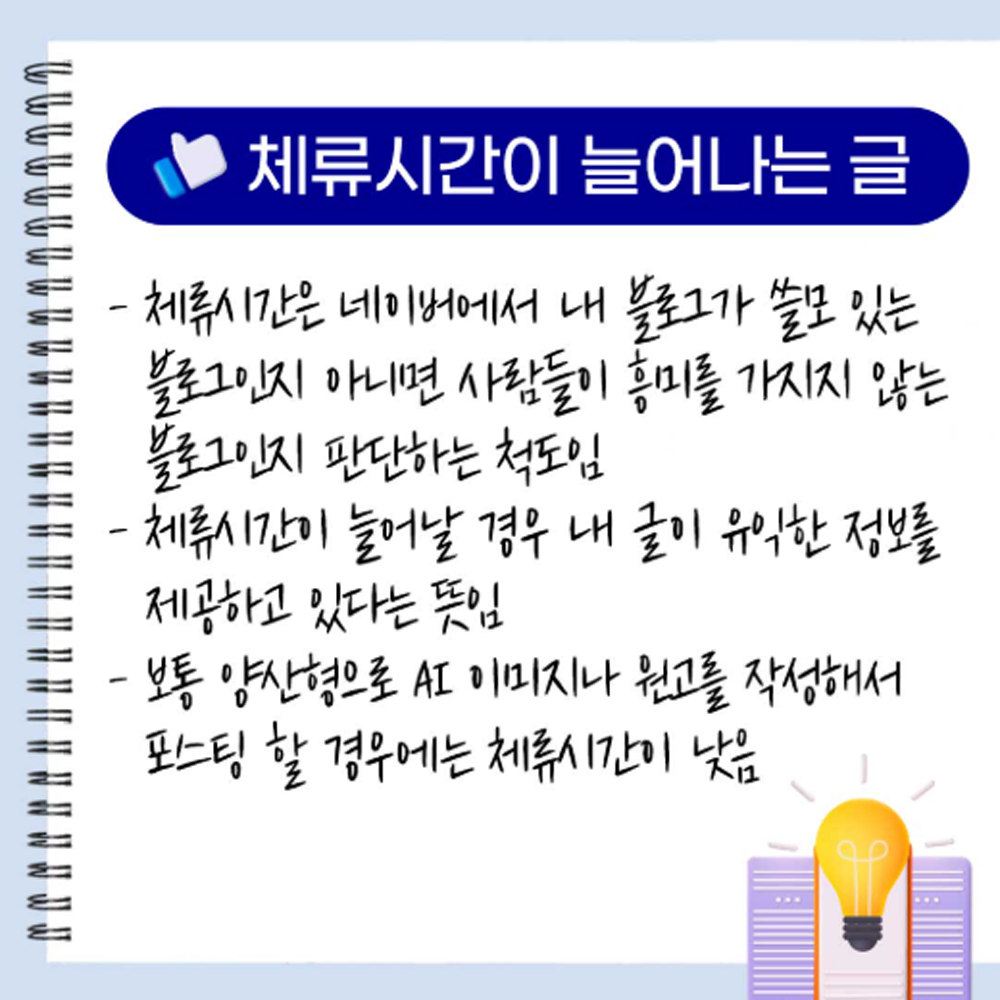 체류시간이 늘어나는 글
- 체류시간은 네이버에서 내 블로그가 쓸모 있는
블로그인지 아니면 사람들이 흥미를 가지지 않는
블로그인지 판단하는 척도임
- 체류시간이 늘어날 경우 내 글이 유익한 정보를
제공하고 있다는 뜻임
- 보통 양산형으로 AI 이미지나 원고를 작성해서
포스팅 할 경우에는 체류시간이 낮음